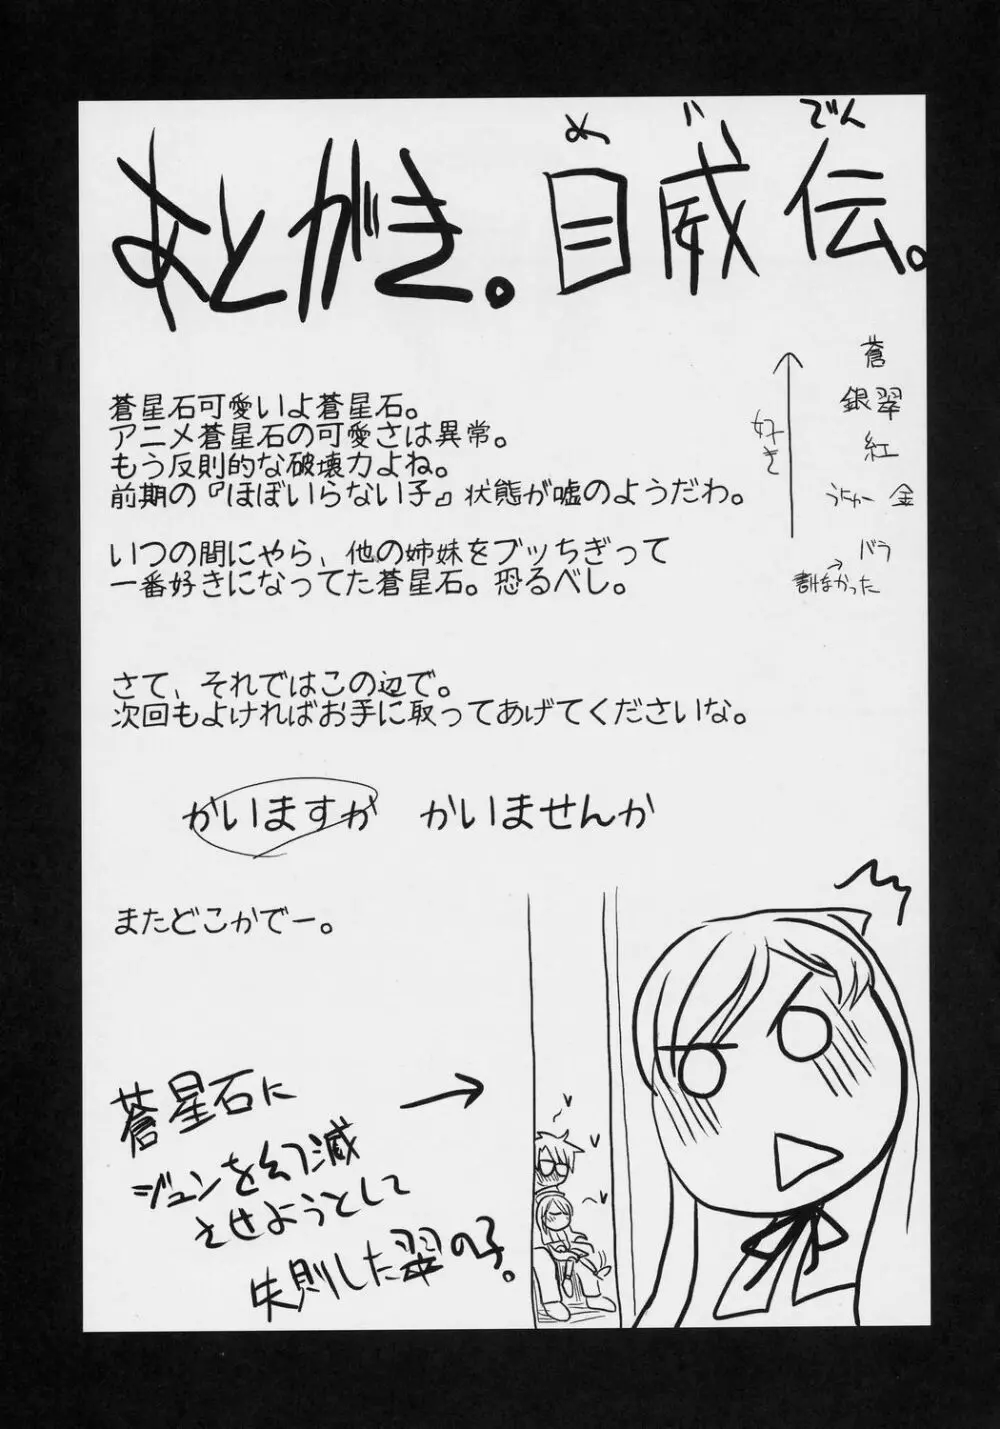 めいでん
あとがき。目威伝。
蒼星石可愛いよ蒼星石。
アニメ蒼星石の可愛さは異常。
もう反則的な破壊力よね。
前期の『ほぼいらない子』状態が嘘のようだわ。
いつの間にやら、他の姉妹をブッちぎって
一番好きになってた蒼星石。恐るべし。
好き
蒼
銀翠
紅
うにゅー 金
バラ
→
書けなかった
さて、それではこの辺で。
次回もよければお手に取ってあげてくださいな。
かいますか かいませんか
またどこかでー。
蒼星石に
ジュンを幻滅
させようとして
失則した翠の子。